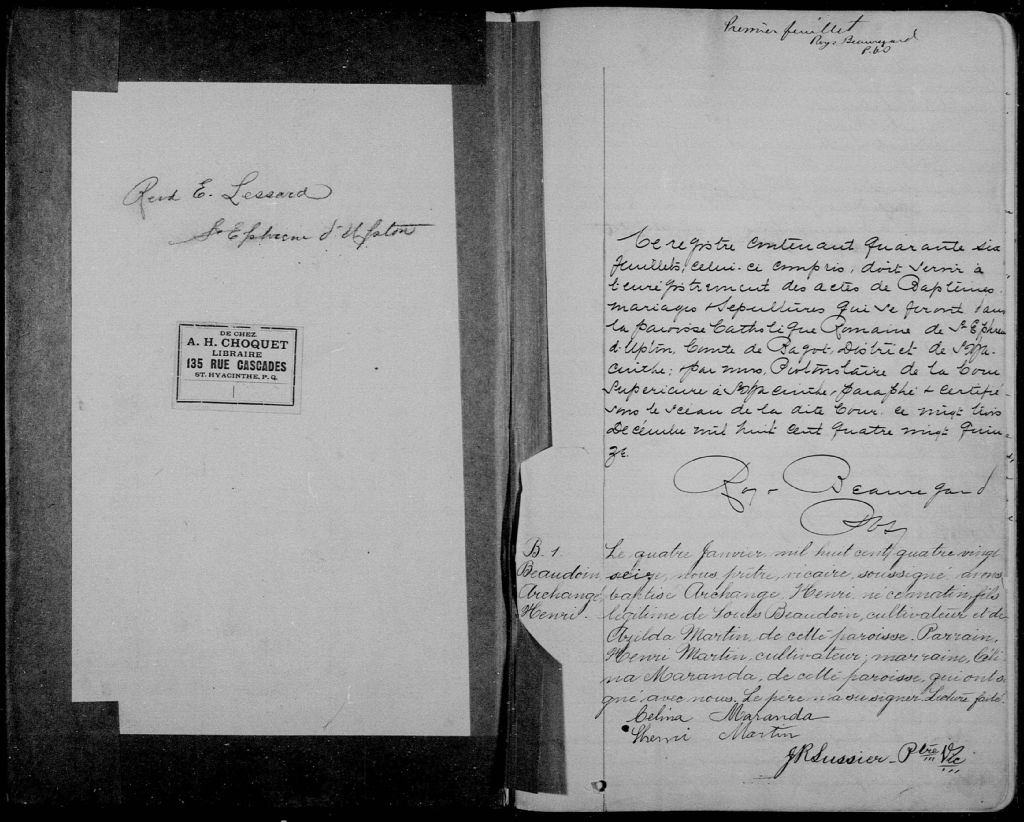 Revd E. Lessard
St Ephrem d'Upton
DE CHEZ
A. H. CHOQUET
LIBRAIRE
135 RUE CASCADES
ST. HYACINTHE, P. Q.
Premier feuillet
Roy & Beauregard
P.C.S
Ce registre contenant quarante six
feuillets, celui-ci compris, doit servir à
l'enregistrement des actes de Baptêmes,
mariages & Sepultures qui se feront dans
la paroisse Catholique Romaine de St Ephrem
d'Upton, Comté de Bagot, District de St Hya-
cinthe; par nous, Protonotaire de la Cour
Superieure à St Hyacinthe, paraphé & certifié
sous le sceau de la dite Cour, ce vingt trois
Decembre mil huit cent quatre vingt quin-
ze.
Roy & Beauregard
PCS
B. 1.
Beaudoin,
Archange
Henri.
Le quatre Janvier, mil huit cent quatre vingt
seize, nous prêtre, vicaire, soussigné, avons
baptisé Archange, Henri, né ce matin, fils
légitime de Louis Beaudoin, cultivateur et de
Azilda Martin, de cette paroisse. Parrain,
Henri Martin, cultivateur; marraine, Céli-
na Maranda, de cette paroisse, qui ont si-
gné avec nous. Le père n'a su signer. Lecture faite.
Celina Maranda
Henri Martin
JR Lussier Ptre Vic